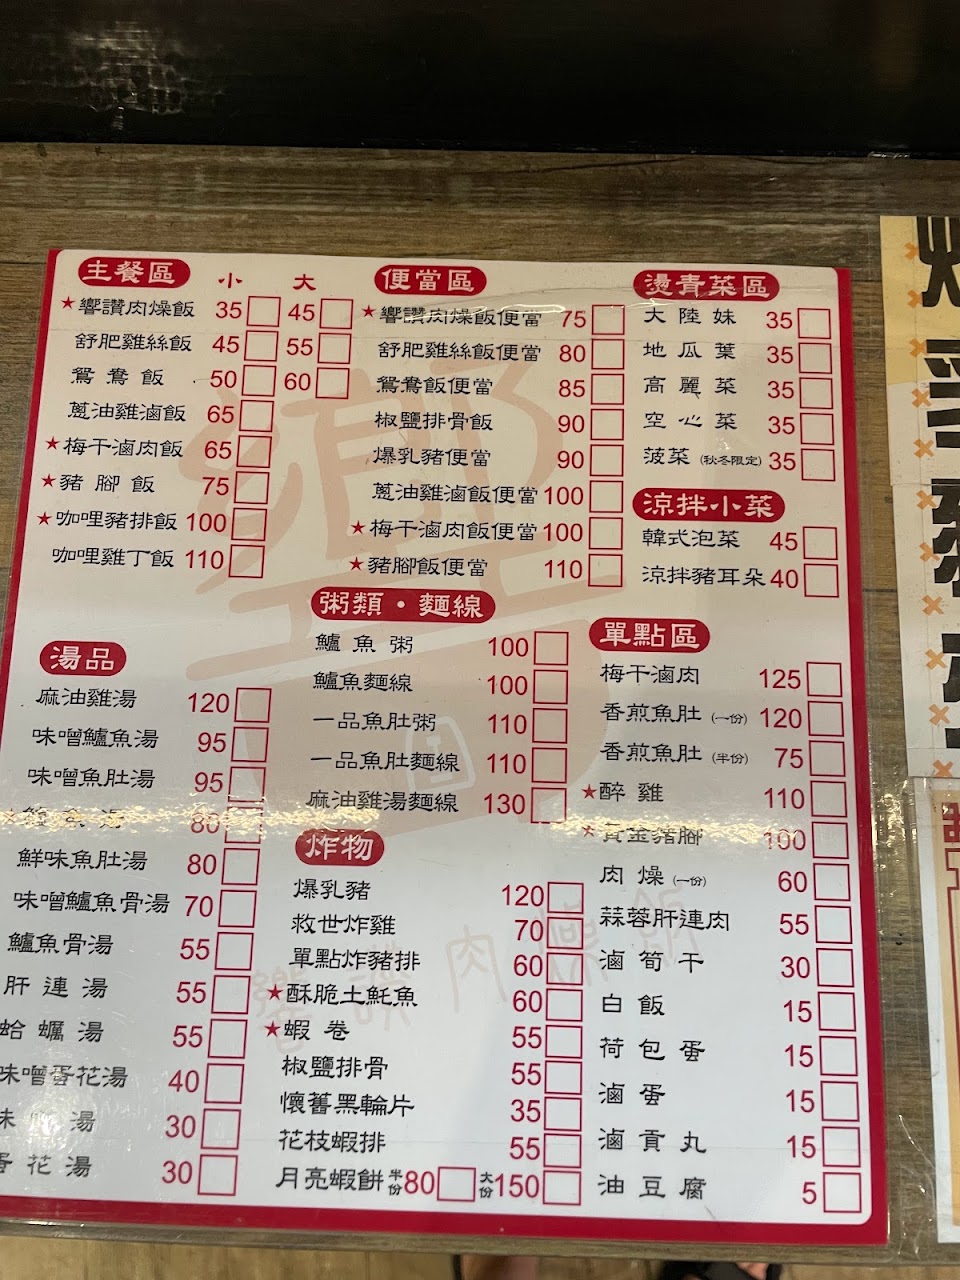 主餐區 小 大
★響讚肉燥飯 35 45
舒肥雞絲飯 45 55
鴛鴦飯 50 60
蔥油雞滷飯 65
★梅干滷肉飯 65
★豬腳飯 75
★咖哩豬排飯 100
咖哩雞丁飯 110
便當區
★響讚肉燥飯便當 75
舒肥雞絲飯便當 80
鴛鴦飯便當 85
椒鹽排骨飯 90
爆乳豬便當 90
蔥油雞滷飯便當 100
★梅干滷肉飯便當 100
★豬腳飯便當 110
燙青菜區
大陸妹 35
地瓜葉 35
高麗菜 35
空心菜 35
菠菜(秋冬限定) 35
涼拌小菜
韓式泡菜 45
涼拌豬耳朵 40
湯品
麻油雞湯 120
味噌鱸魚湯 95
味噌魚肚湯 95
魚湯 80
鮮味魚肚湯 80
味噌鱸魚骨湯 70
鱸魚骨湯 55
肝連湯 55
蛤蠣湯 55
味噌蛋花湯 40
湯 30
蛋花湯 30
粥類・麵線
鱸魚粥 100
鱸魚麵線 100
一品魚肚粥 110
一品魚肚麵線 110
麻油雞湯麵線 130
炸物
爆乳豬 120
救世炸雞 70
單點炸豬排 60
★酥脆土魠魚 60
★蝦卷 55
椒鹽排骨 55
懷舊黑輪片 35
花枝蝦排 55
月亮蝦餅 半份80 大份150
單點區
梅干滷肉 125
香煎魚肚(一份) 120
香煎魚肚(半份) 75
★醉雞 110
★黃金豬腳 100
肉燥(一份) 60
蒜蓉肝連肉 55
滷筍干 30
白飯 15
荷包蛋 15
滷蛋 15
滷貢丸 15
油豆腐 5